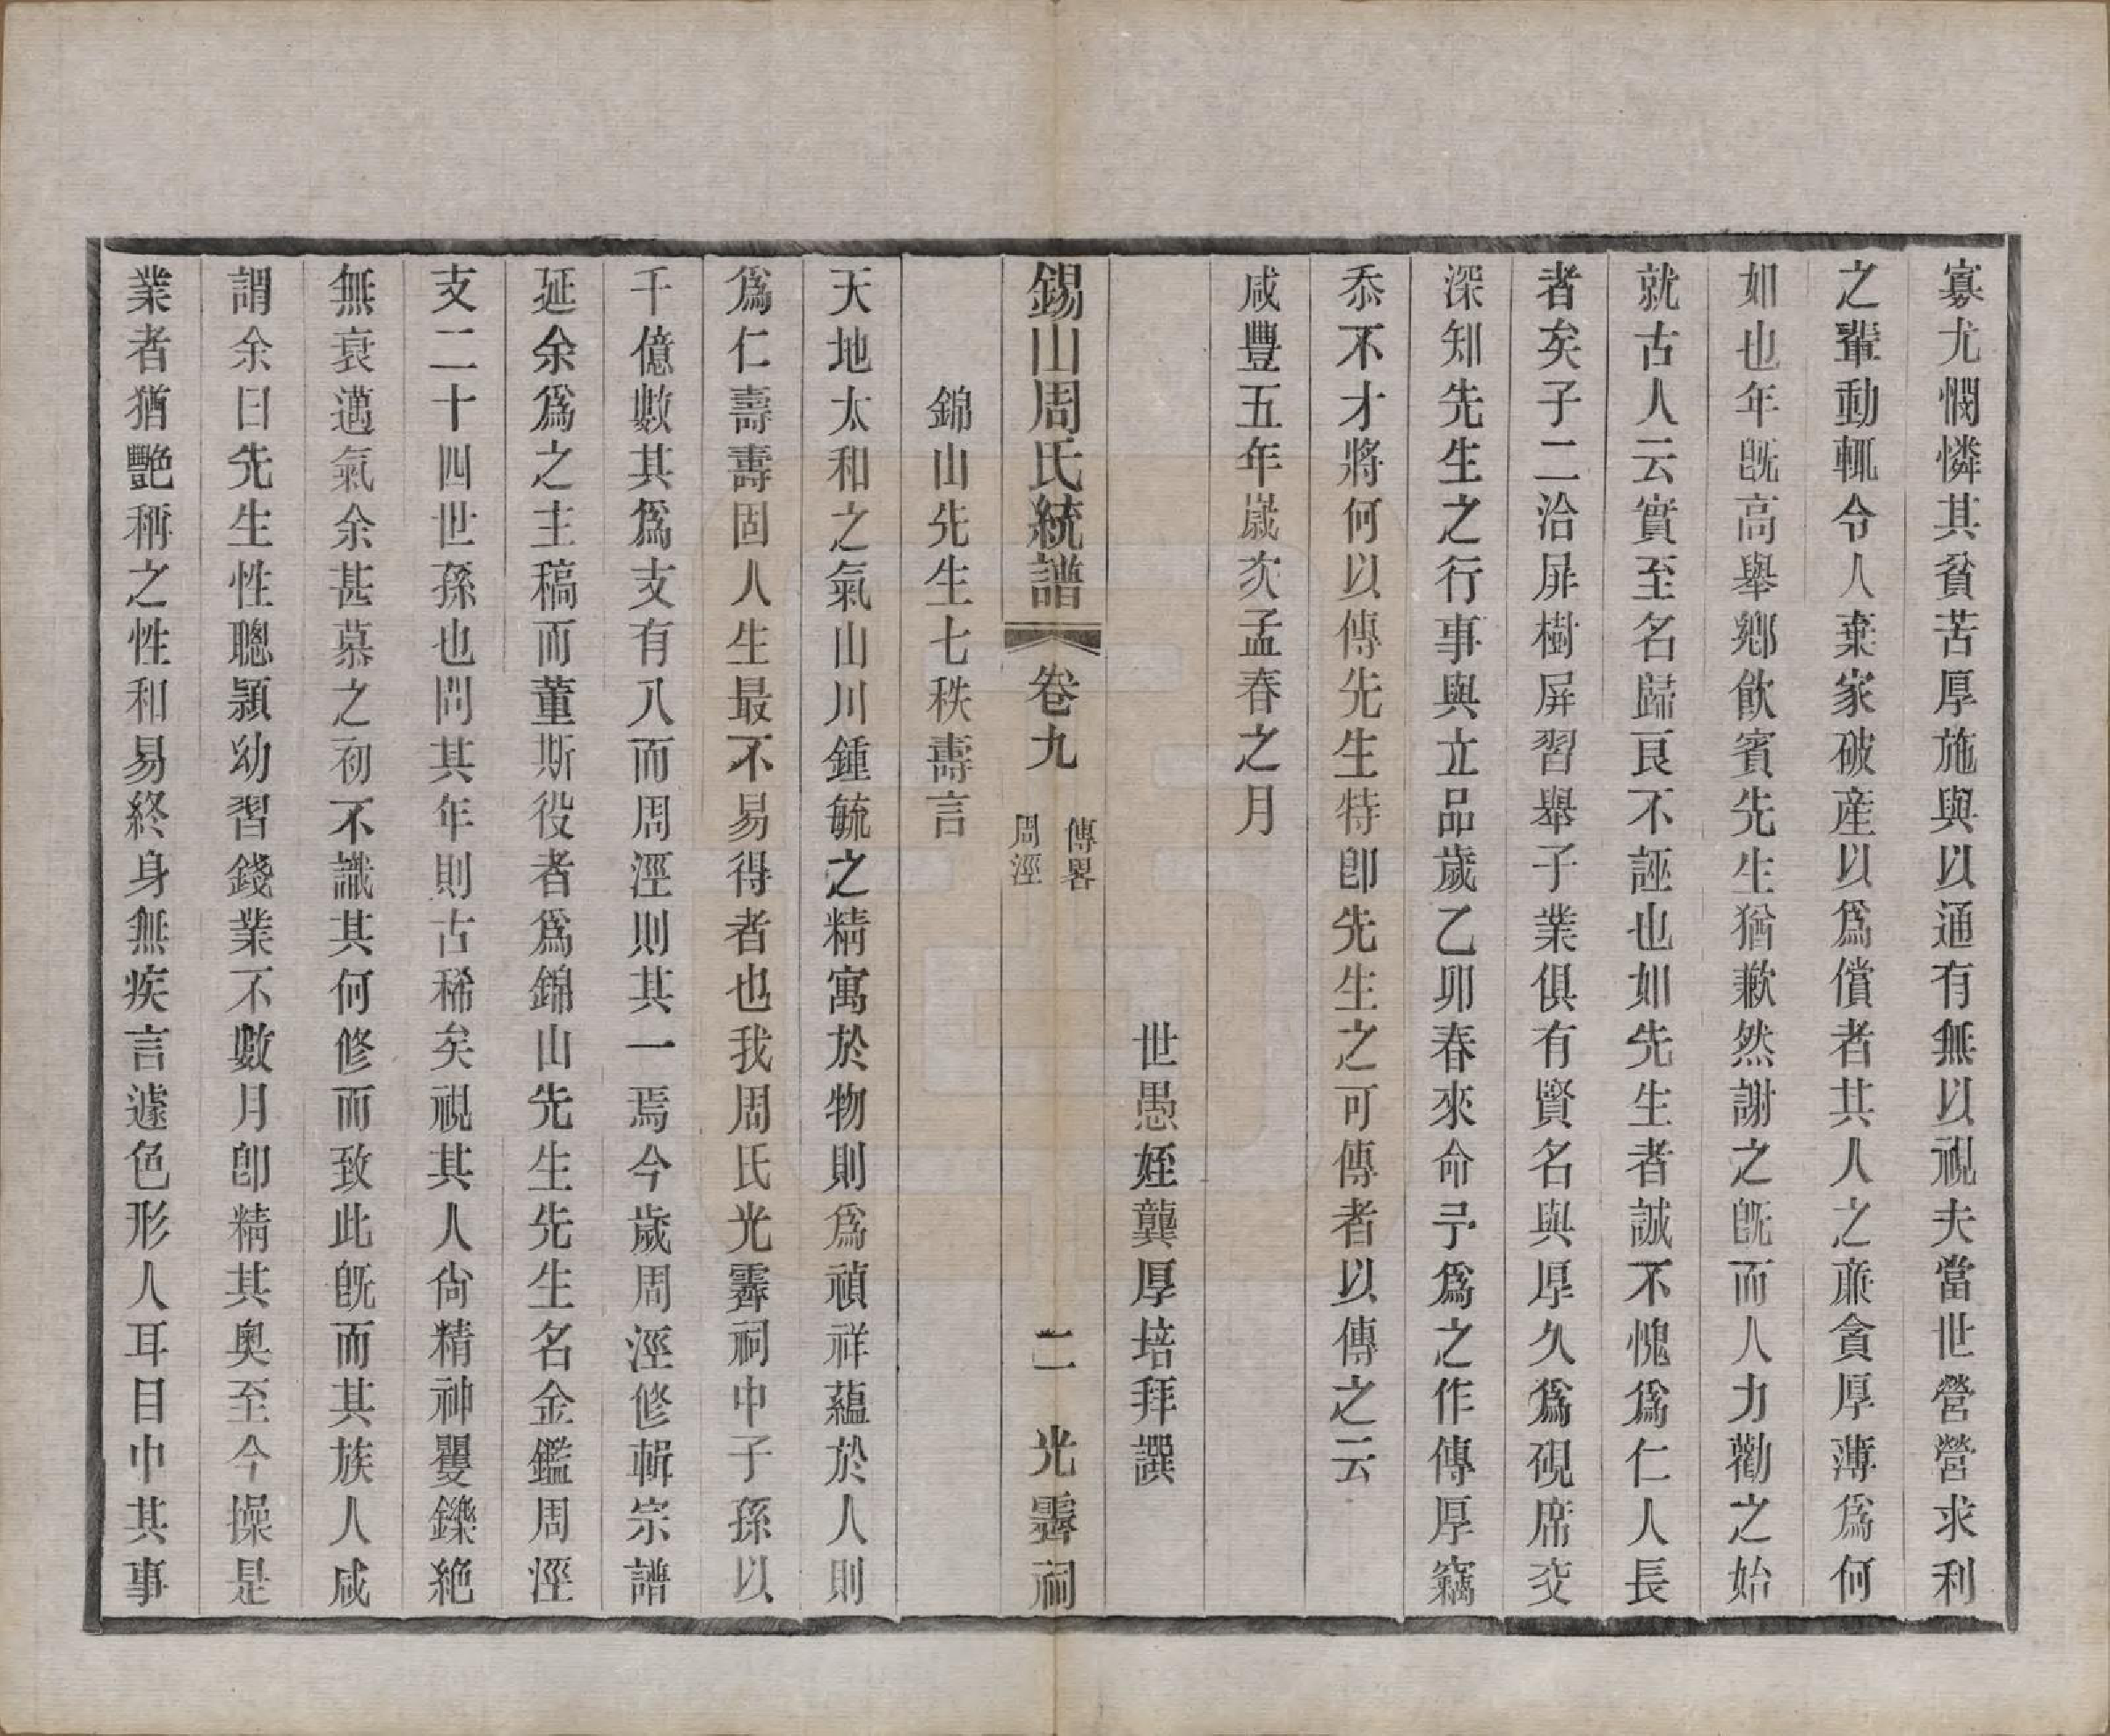 寡尤憫憐其貧苦厚施與以通有無以視夫當世營營求利
之輩動輒令人棄家破產以爲償者其人之亷貪厚薄爲何
如也年旣高舉鄕飮賓先生猶歉然謝之旣而人力勸之始
就古人云實至名歸良不誣也如先生者誠不愧爲仁人長
者矣子二洽屏樹屏習舉子業俱有賢名與厚久爲硯席交
深知先生之行事與立品歲乙卯春來命予爲之作傳厚竊
忝不才將何以傳先生特卽先生之可傳者以傳之云
咸豐五年嵗次孟春之月
世愚姪龔厚培拜譔
錫山周氏統譜
卷九
傳畧
周涇
二
光霽祠
錦山先生七秩壽言
天地太和之氣山川鍾毓之精寓於物則爲禎祥蘊於人則
爲仁壽壽固人生最不易得者也我周氏光霽祠中子孫以
千億數其爲支有八而周涇則其一焉今歲周涇修輯宗譜
延余爲之主稿而董斯役者爲錦山先生先生名金鑑周涇
支二十四世孫也問其年則古稀矣視其人尙精神矍鑠絶
無衰邁氣余甚慕之初不識其何修而致此旣而其族人咸
謂余曰先生性聰頴幼習錢業不數月卽精其奥至今操是
業者猶艷稱之性和易終身無疾言遽色形人耳目中其事